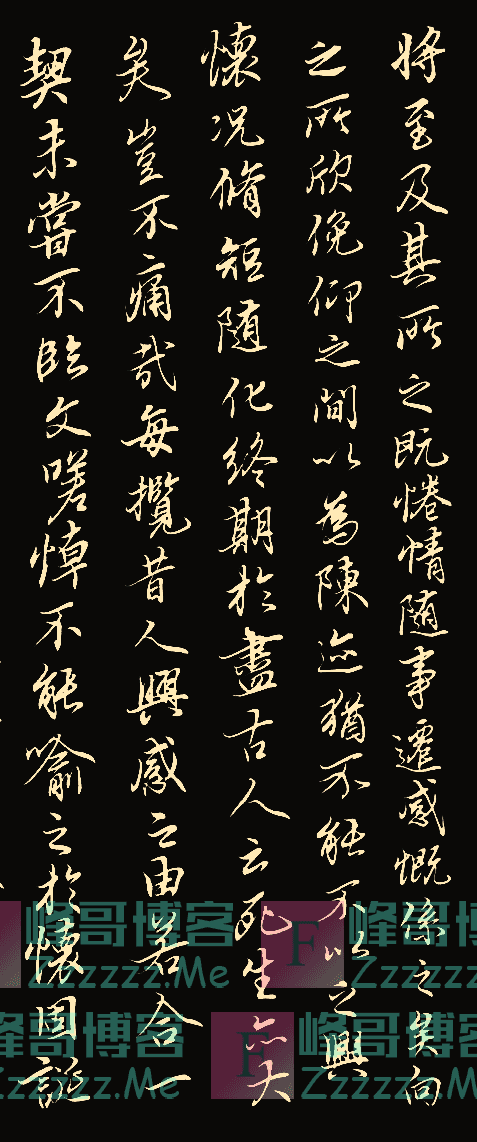 將至及其所之既惓情随事遷感慨係之矣向
之所欣俛仰之間以為陳迹猶不能不以之興
懷况脩短随化終期於盡古人云死生亦大
矣豈不痛哉每攬昔人興感之由若合一
契未嘗不臨文嗟悼不能喻之於懷固誕
峰哥博客
Zzzzzz.Me
F 峰哥博客
Zzzzzz.Me
峰哥博客
Zzzzzz.Me
F 峰哥博客
Zzzzzz.Me